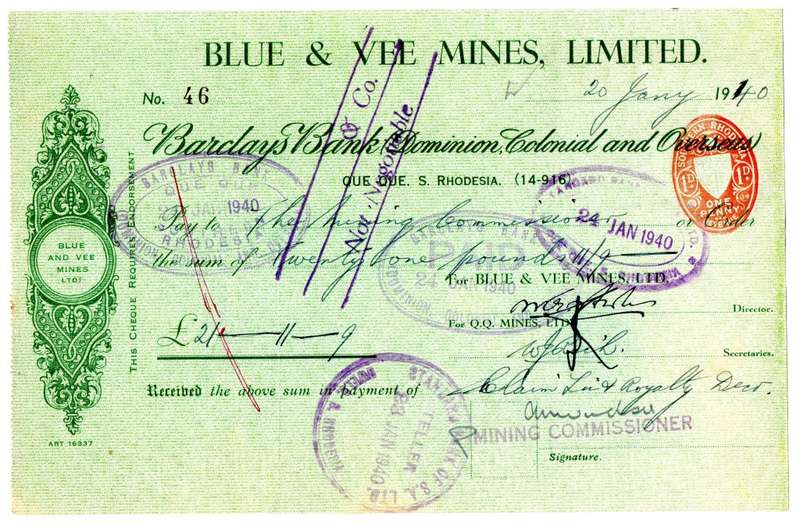 BLUE & VEE MINES, LIMITED.
No. 46
20 Jany 1940
Barclays Bank (Dominion, Colonial and Overseas)
QUE QUE. S. RHODESIA. (14-916)
& Co.
Not Negotiable
SOUTHERN RHODESIA
1D. 1D.
ONE PENNY
BARCLAYS BANK
JAN 1940
RHODESIA
Pay to The Mining Commissioner or Order
24 JAN 1940
the sum of Twenty one pounds 11/9
PAID
24 JAN 1940
For BLUE & VEE MINES, LTD.
Director.
For Q.Q. MINES, LTD.
£ 21 — 11 — 9
Secretaries.
Received the above sum in payment of Claim Lic & Royalty Decr.
MINING COMMISSIONER
Signature.
STANDARD BANK OF S.A. LTD.
TELLER
23 JAN 1940
THIS CHEQUE REQUIRES ENDORSEMENT
BLUE
AND VEE
MINES
LTD.
ART 16337